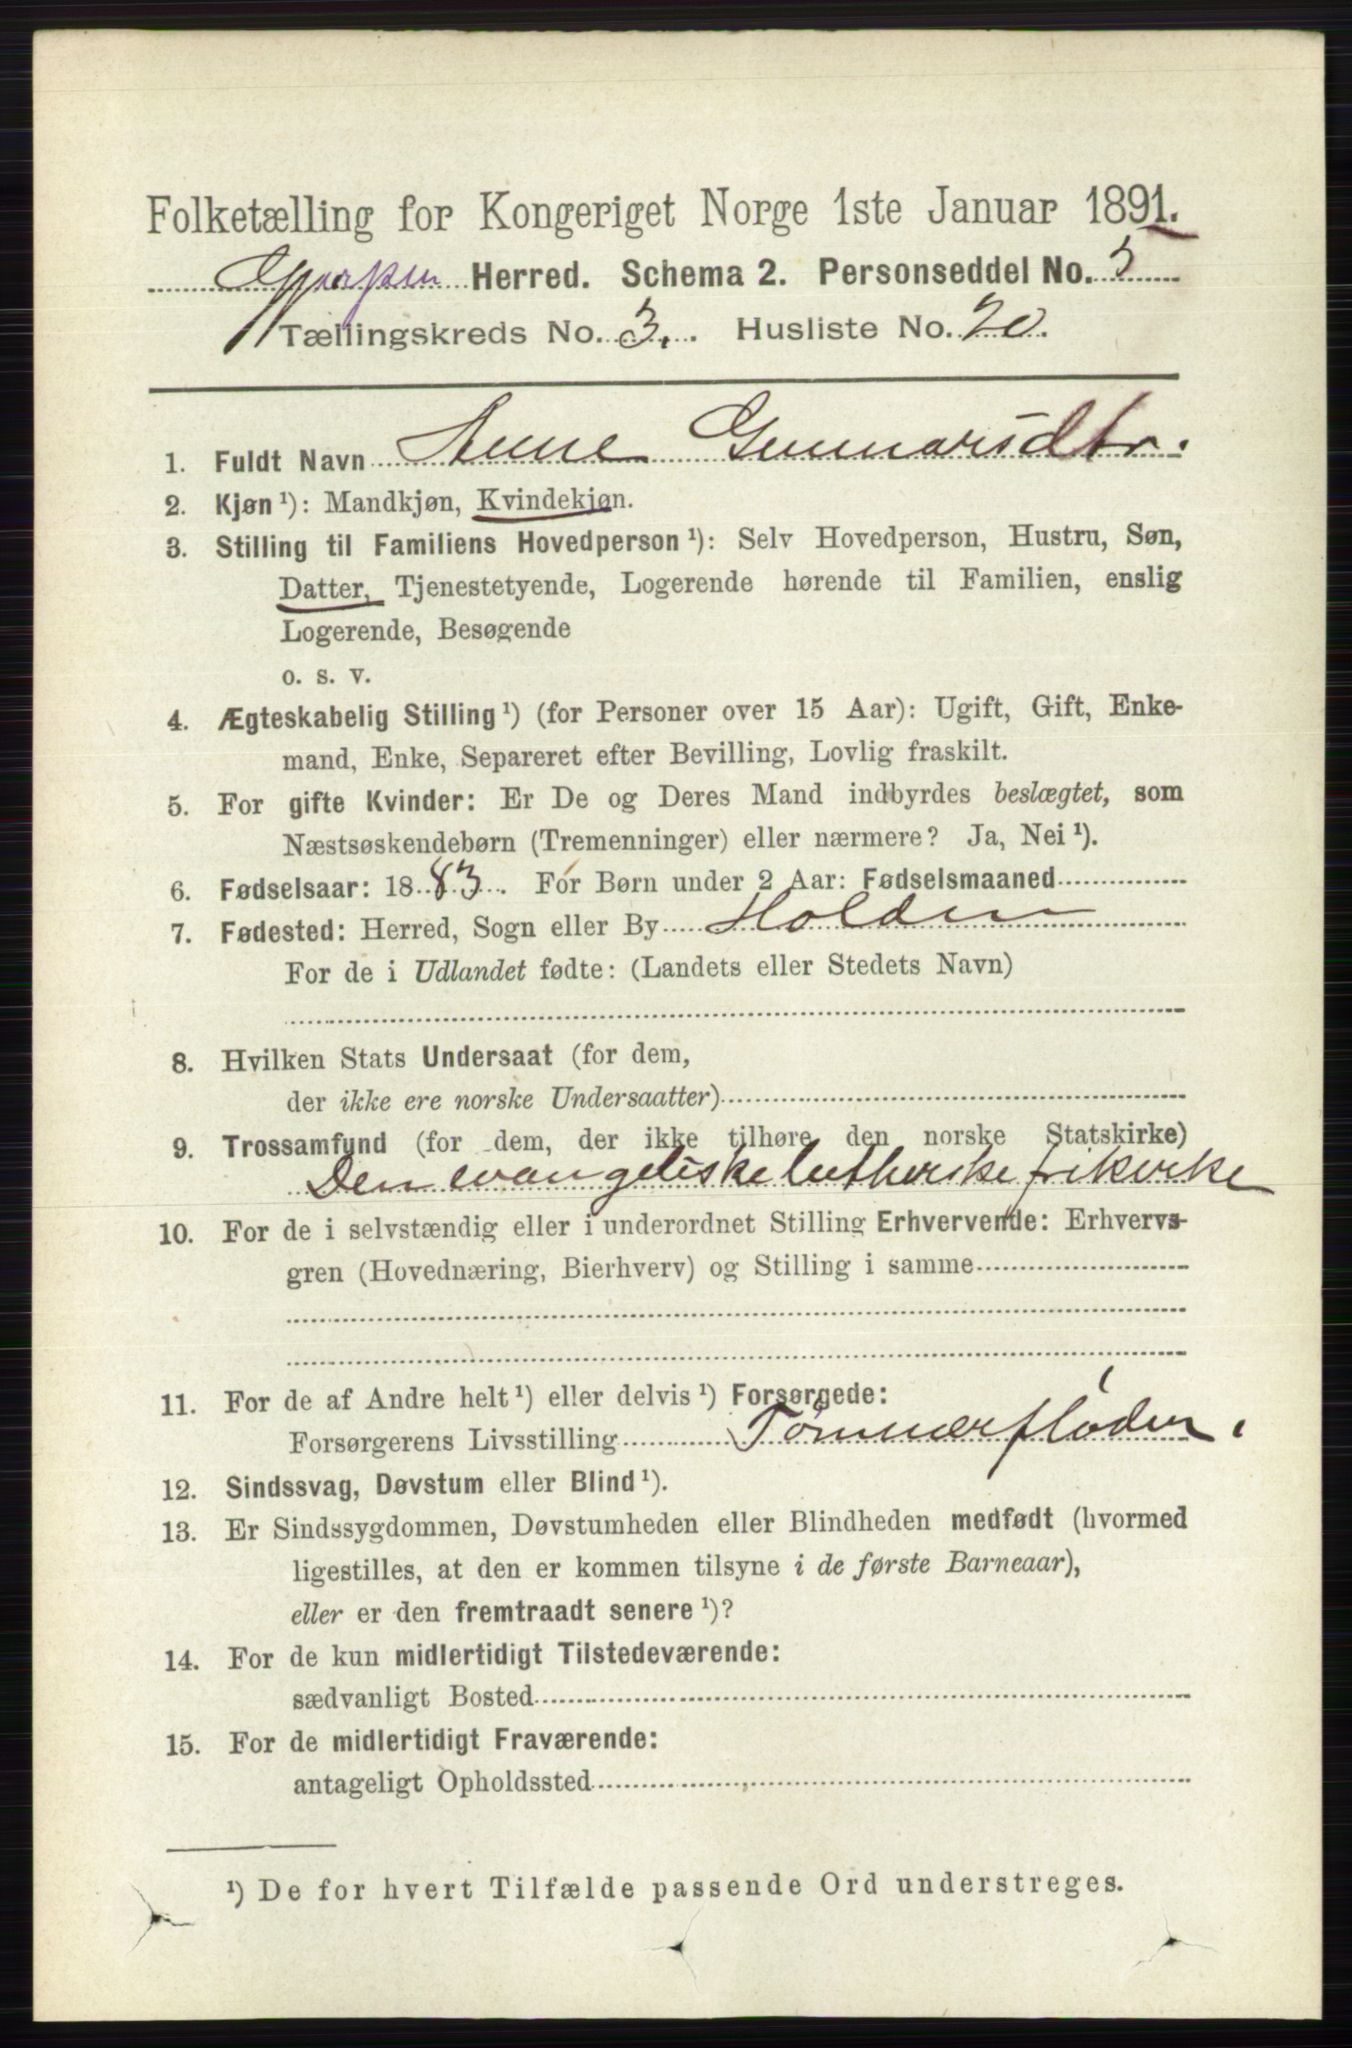 Folketælling for Kongeriget Norge 1ste Januar 1891.
Gjerpen Herred. Schema 2. Personseddel No. 5
Tællingskreds No. 3. Husliste No. 20.
1. Fuldt Navn Anne Gunnarsdtr.
2. Kjøn ¹): Mandkjøn, Kvindekjøn.
3. Stilling til Familiens Hovedperson ¹): Selv Hovedperson, Hustru, Søn,
Datter, Tjenestetyende, Logerende hørende til Familien, enslig
Logerende, Besøgende
o. s. v.
4. Ægteskabelig Stilling ¹) (for Personer over 15 Aar): Ugift, Gift, Enke-
mand, Enke, Separeret efter Bevilling, Lovlig fraskilt.
5. For gifte Kvinder: Er De og Deres Mand indbyrdes beslægtet, som
Næstsøskendebørn (Tremenninger) eller nærmere? Ja, Nei ¹).
6. Fødselsaar: 1883. For Børn under 2 Aar: Fødselsmaaned
7. Fødested: Herred, Sogn eller By Holden
For de i Udlandet fødte: (Landets eller Stedets Navn)
8. Hvilken Stats Undersaat (for dem,
der ikke ere norske Undersaatter)
9. Trossamfund (for dem, der ikke tilhøre den norske Statskirke)
Den evangeliske lutherske frikirke
10. For de i selvstændig eller i underordnet Stilling Erhvervende: Erhvervs-
gren (Hovednæring, Bierhverv) og Stilling i samme
11. For de af Andre helt ¹) eller delvis ¹) Forsørgede:
Forsørgerens Livsstilling Tømmerfløder.
12. Sindssvag, Døvstum eller Blind ¹).
13. Er Sindssygdommen, Døvstumheden eller Blindheden medfødt (hvormed
ligestilles, at den er kommen tilsyne i de første Barneaar),
eller er den fremtraadt senere ¹)?
14. For de kun midlertidigt Tilstedeværende:
sædvanligt Bosted
15. For de midlertidigt Fraværende:
antageligt Opholdssted
¹) De for hvert Tilfælde passende Ord understreges.